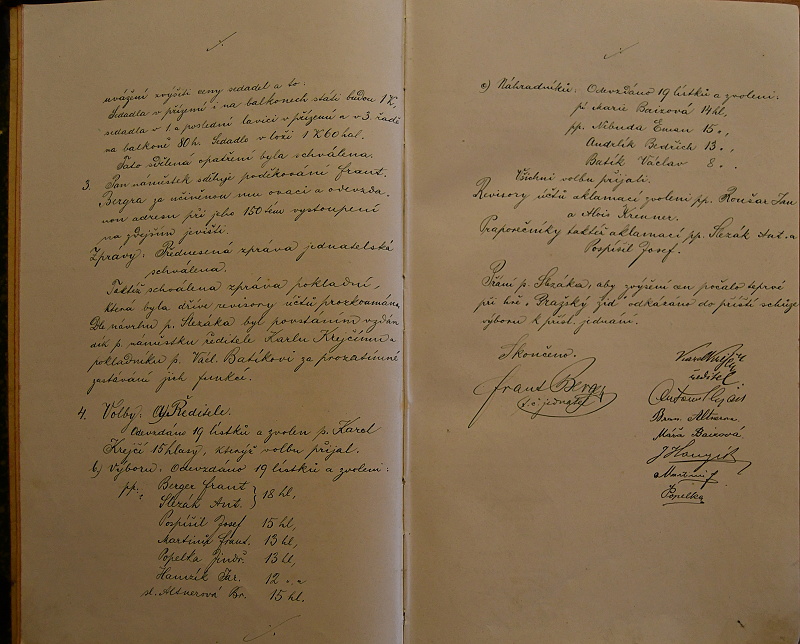 uvážení zvýšiti ceny sedadel a to:
Sedadla v přízemí i na balkonech státi budou 1 K,
sedadla v 1. a poslední lavici v přízemí a v 3. řadě
na balkoně 80 h. Sedadlo v loži 1 K 60 hal.
Tato sdělená opatření byla schválena.
3. Pan náměstek sděluje poděkování Frant.
Bergra za míněnou mu ovaci a odevzda-
nou adresu při jeho 150tém vystoupení
na zdejším jevišti.
Zprávy: Přednesená zpráva jednatelská
schválena.
Taktéž schválena zpráva pokladní,
která byla dříve revisory účtů prozkoumána
Dle návrhu p. Slezáka byl povstáním vzdán
dík p. náměstku ředitele Karlu Krejčímu a
pokladníku p. Václ. Batíkovi za prozatímné
zastávání jich funkcí.
4. Volby: a) Ředitele.
Odevzdáno 19 lístků a zvolen p. Karel
Krejčí 15 hlasy, kterýž volbu přijal.
b) Výboru: Odevzdáno 19 lístků a zvoleni:
pp. Berger Frant
Slezák Ant. } 18 hl,
Pospíšil Josef 15 hl,
Martinů Frant. 13 hl,
Popelka Jindř. 13 hl,
Hamzík Jar. 12 „ „
sl. Altnerová Br. 15 hl.
c) Náhradníků: Odevzdáno 19 lístků a zvoleni:
pí Marie Baizová 14 hl,
pp. Nebuda Eman 15 „,
Andrlík Bedřich 13 „,
Batík Václav 8 „,
Všichni volbu přijali.
Revisory účtů aklamací zvoleni pp. Roušar Jan
a Alois Krenner.
Praporečníky taktéž aklamací pp. Slezák Ant. a
Pospíšil Josef.
Přání p. Slezáka, aby zvýšení cen počalo teprve
při hře „Pražský žid" odkázáno do příští schůze
výboru k příst. jednání.
Skončeno.
Frant Berger
t. č. jednatel
Karel Krejčí
ředitel
Bron. Altnerova
Mářa Baizová
Martinů F
Popelka